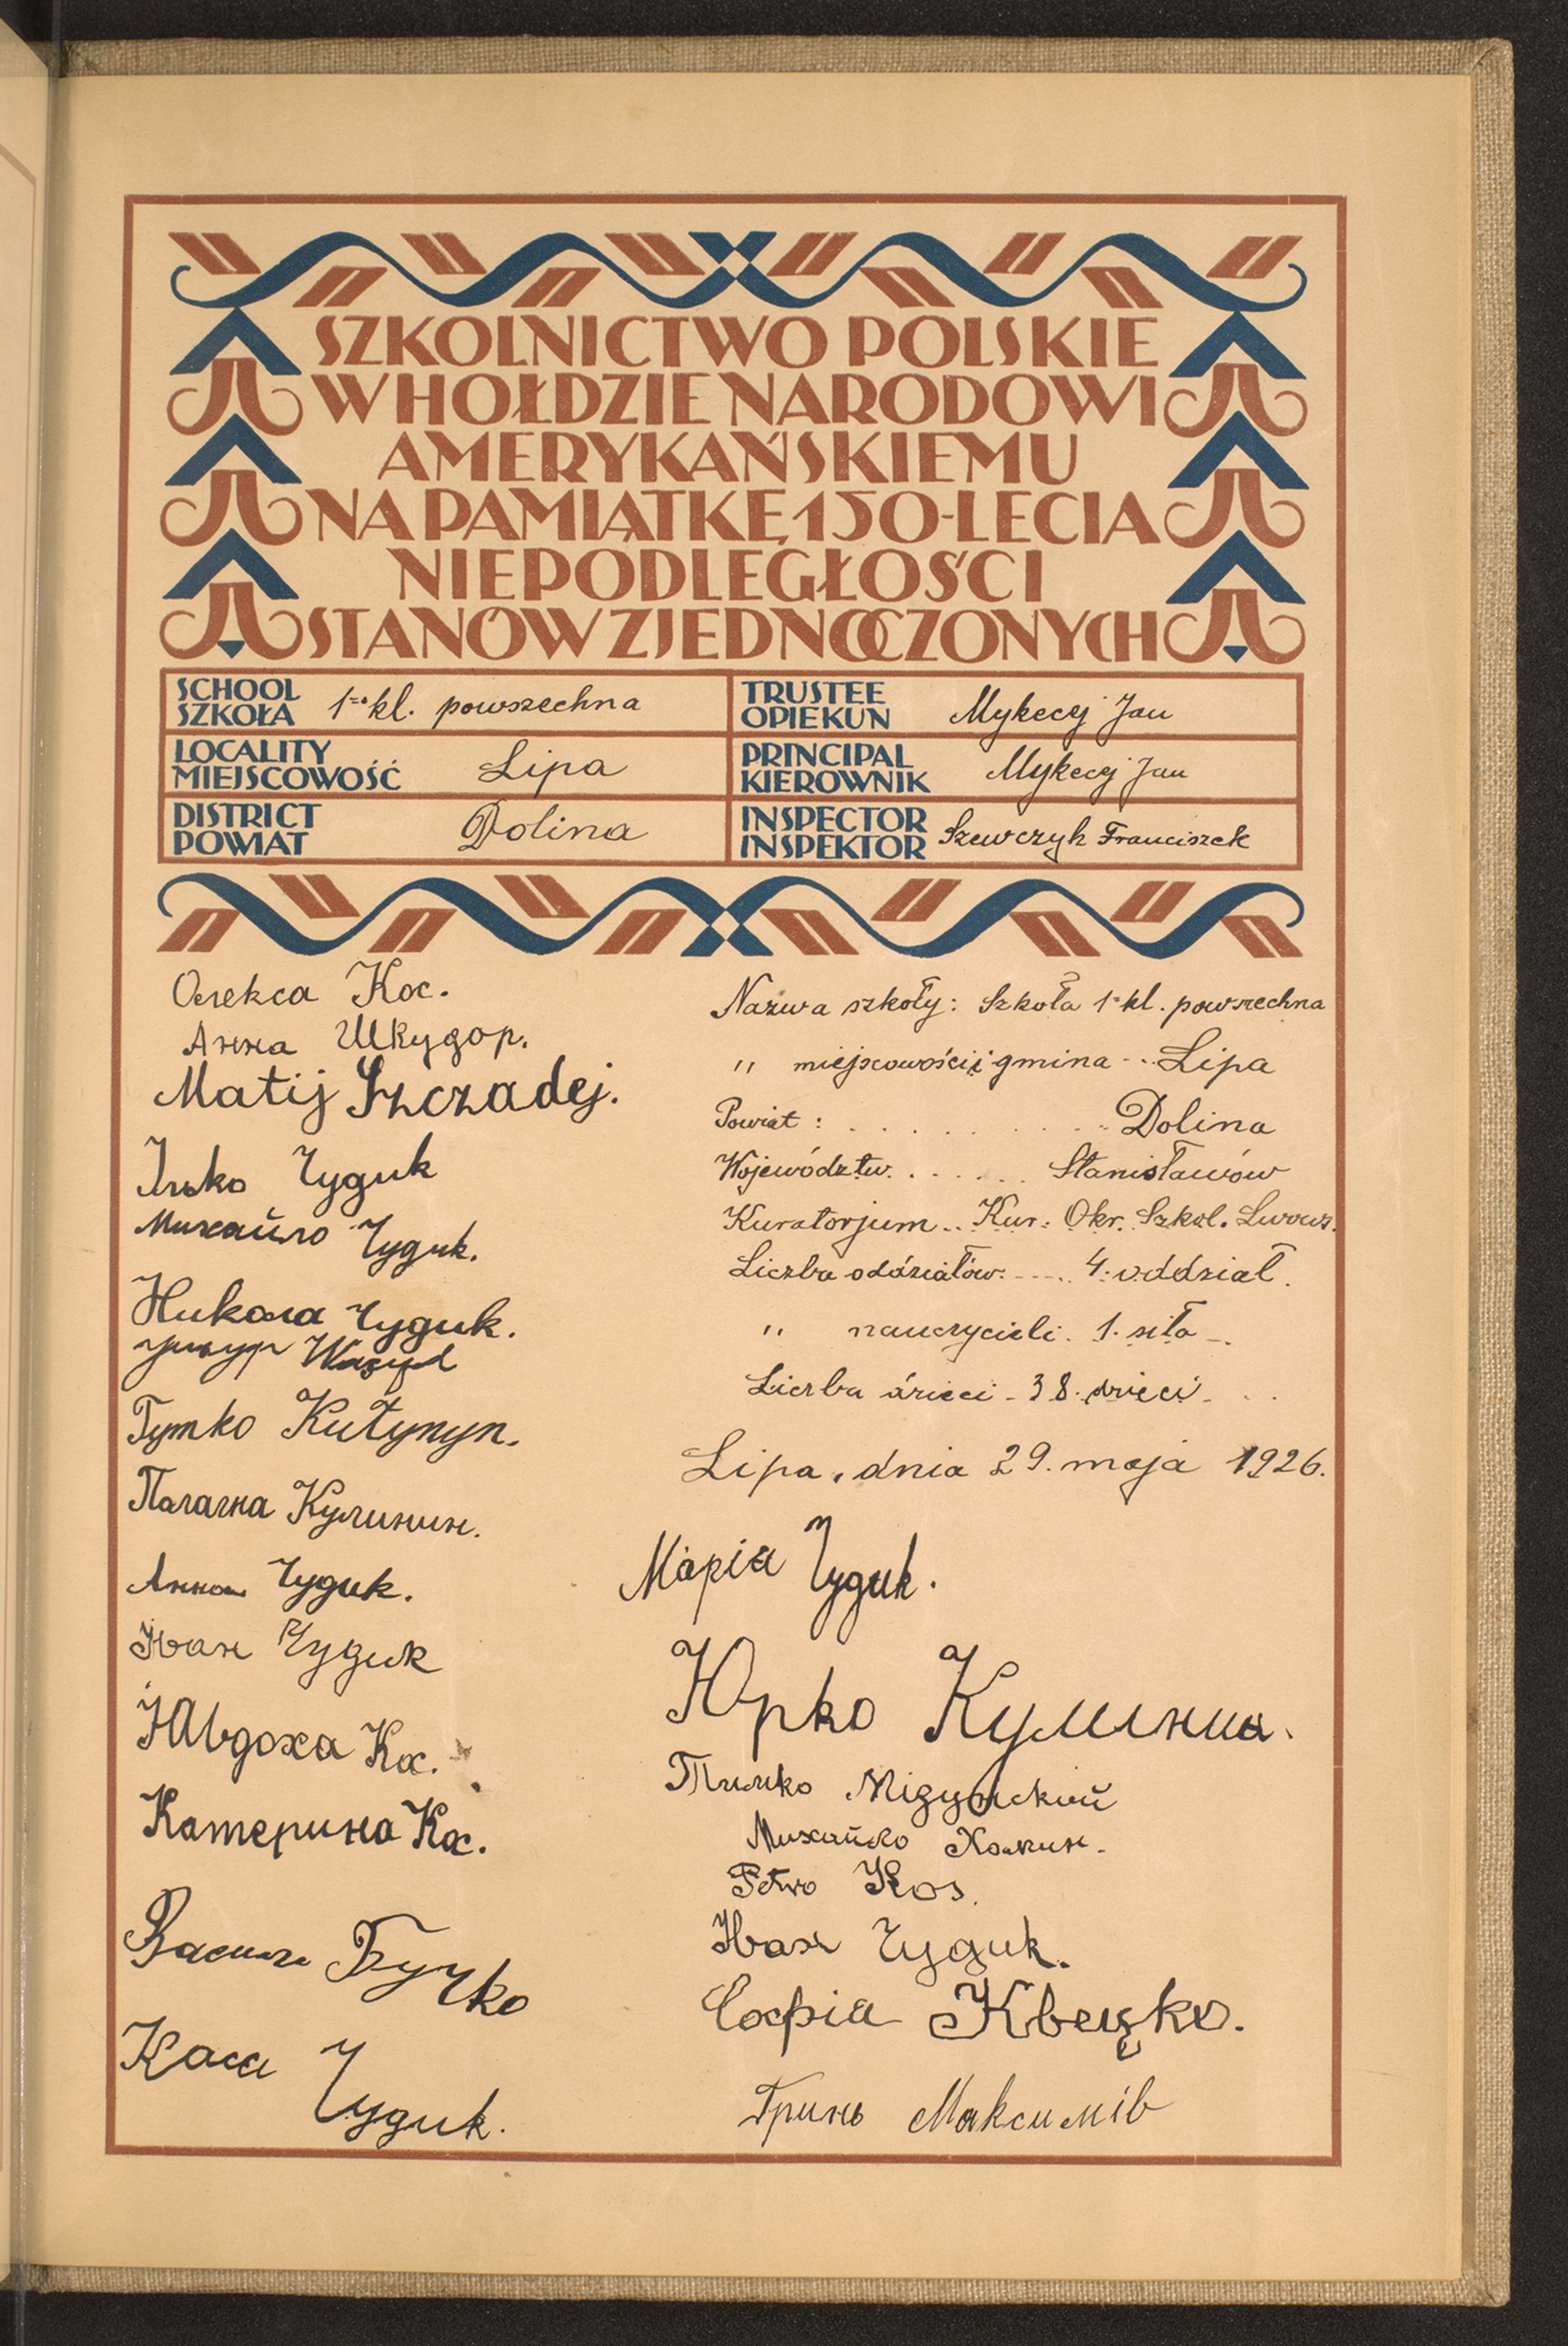 SZKOLNICTWO POLSKIE
W HOŁDZIE NARODOWI
AMERYKAŃSKIEMU
NA PAMIĄTKĘ 150-LECIA
NIEPODLEGŁOŚCI
STANÓW ZJEDNOCZONYCH
SCHOOL
SZKOŁA 1-kl. powszechna
LOCALITY
MIEJSCOWOŚĆ Lipa
DISTRICT
POWIAT Dolina
TRUSTEE
OPIEKUN Mykecej Jan
PRINCIPAL
KIEROWNIK Mykecej Jan
INSPECTOR
INSPEKTOR Szewczyk Franciszek
Олекса Кос.
Анна Шкудор.
Matij Szczadej.
Ілько Чудик
Михайло Чудик.
Никола Чудик.
Tymko Kutynyn.
Палагна Кулинин.
Анна Чудик.
Іван Чудик
Явдоха Кос.
Катерина Кос.
Василь Бучко
Чудик.
Nazwa szkoły: Szkoła 1-kl. powszechna
" miejscowości i gmina - .. Lipa
Powiat : . . . . . . . Dolina
Województw. . . . . . Stanisławów
Kuratorjum .. Kur. Okr. Szkol. Lwows.
Liczba oddziałów: - .... 4. oddział.
" nauczycieli. 1. siła -.
Liczba dzieci - 38. dzieci -
Lipa, dnia 29. maja 1926.
Марія Чудик.
Юрко Кулинин.
Тимко Мізунский
Михайло
Petro Kos.
Іван Чудик.
Софія Квецко.
Гринь Максимів